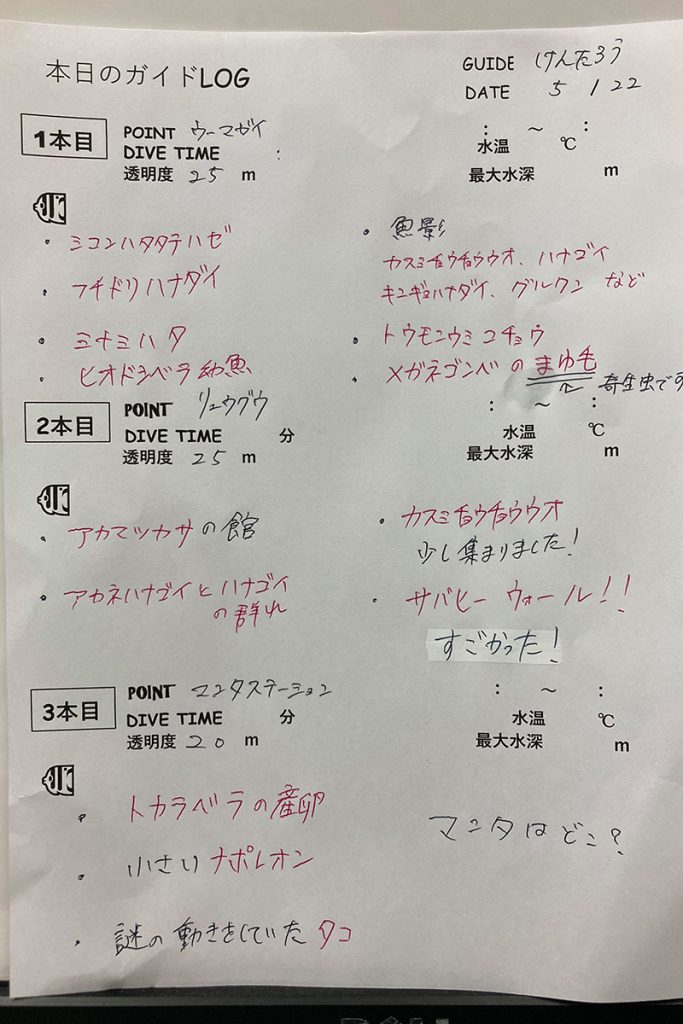 本日のガイドLOG
GUIDE けんたろう
DATE 5 / 22
1本目
POINT ウーマガイ
DIVE TIME :
透明度 25 m
: ~ :
水温 ℃
最大水深 m
・ミコンハタタテハゼ
・フチドリハナダイ
・ミナミハタ
・ヒオドシベラ幼魚
・魚影
カスミチョウチョウウオ、ハナゴイ
キンギョハナダイ、グルクン など
・トウモンウミコチョウ
・メガネゴンベの まゆ毛
寄生虫です
2本目
POINT リュウグウ
DIVE TIME 分
透明度 25 m
: ~ :
水温 ℃
最大水深 m
・アカマツカサの館
・アカネハナゴイとハナゴイ
の群れ
・カスミチョウチョウウオ
少し集まりました!
・サバヒー ウォール!!
すごかった!
3本目
POINT マンタステーション
DIVE TIME 分
透明度 20 m
: ~ :
水温 ℃
最大水深 m
・トカラベラの産卵
・小さいナポレオン
・謎の動きをしていたタコ
マンタはどこ?